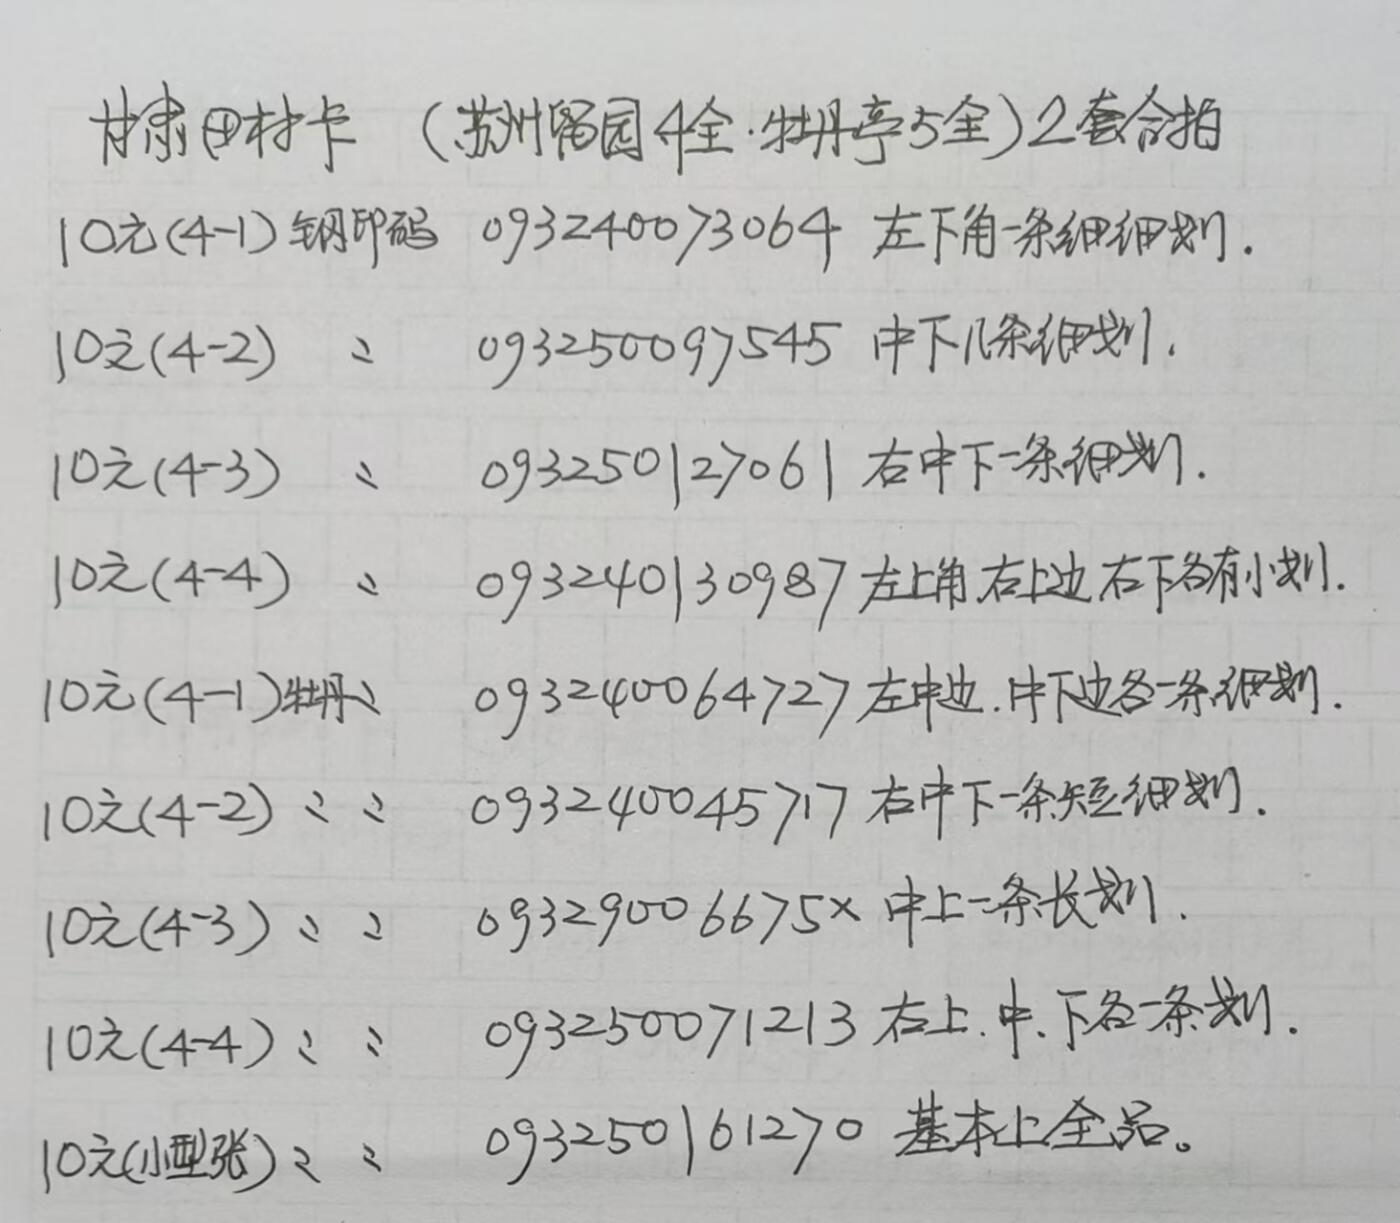 甘肃田村卡 (苏州留园4全·牡丹亭5全)2套合拍
10元(4-1)钢印码 093240073064 左下角一条细细划.
10元(4-2) 〃 093250097545 中下几条细划.
10元(4-3) 〃 093250127061 右中下一条细划.
10元(4-4) 〃 093240130987 左上角.右上边.右下各有小划.
10元(4-1)牡丹〃 093240064727 左中边.中下边各一条细划.
10元(4-2)〃 〃 093240045717 右中下一条短细划.
10元(4-3)〃 〃 09329006675x 中上一条长划.
10元(4-4)〃 〃 093250071213 右上.中.下各一条划.
10元(小型张)〃 〃 093250161270 基本上全品。